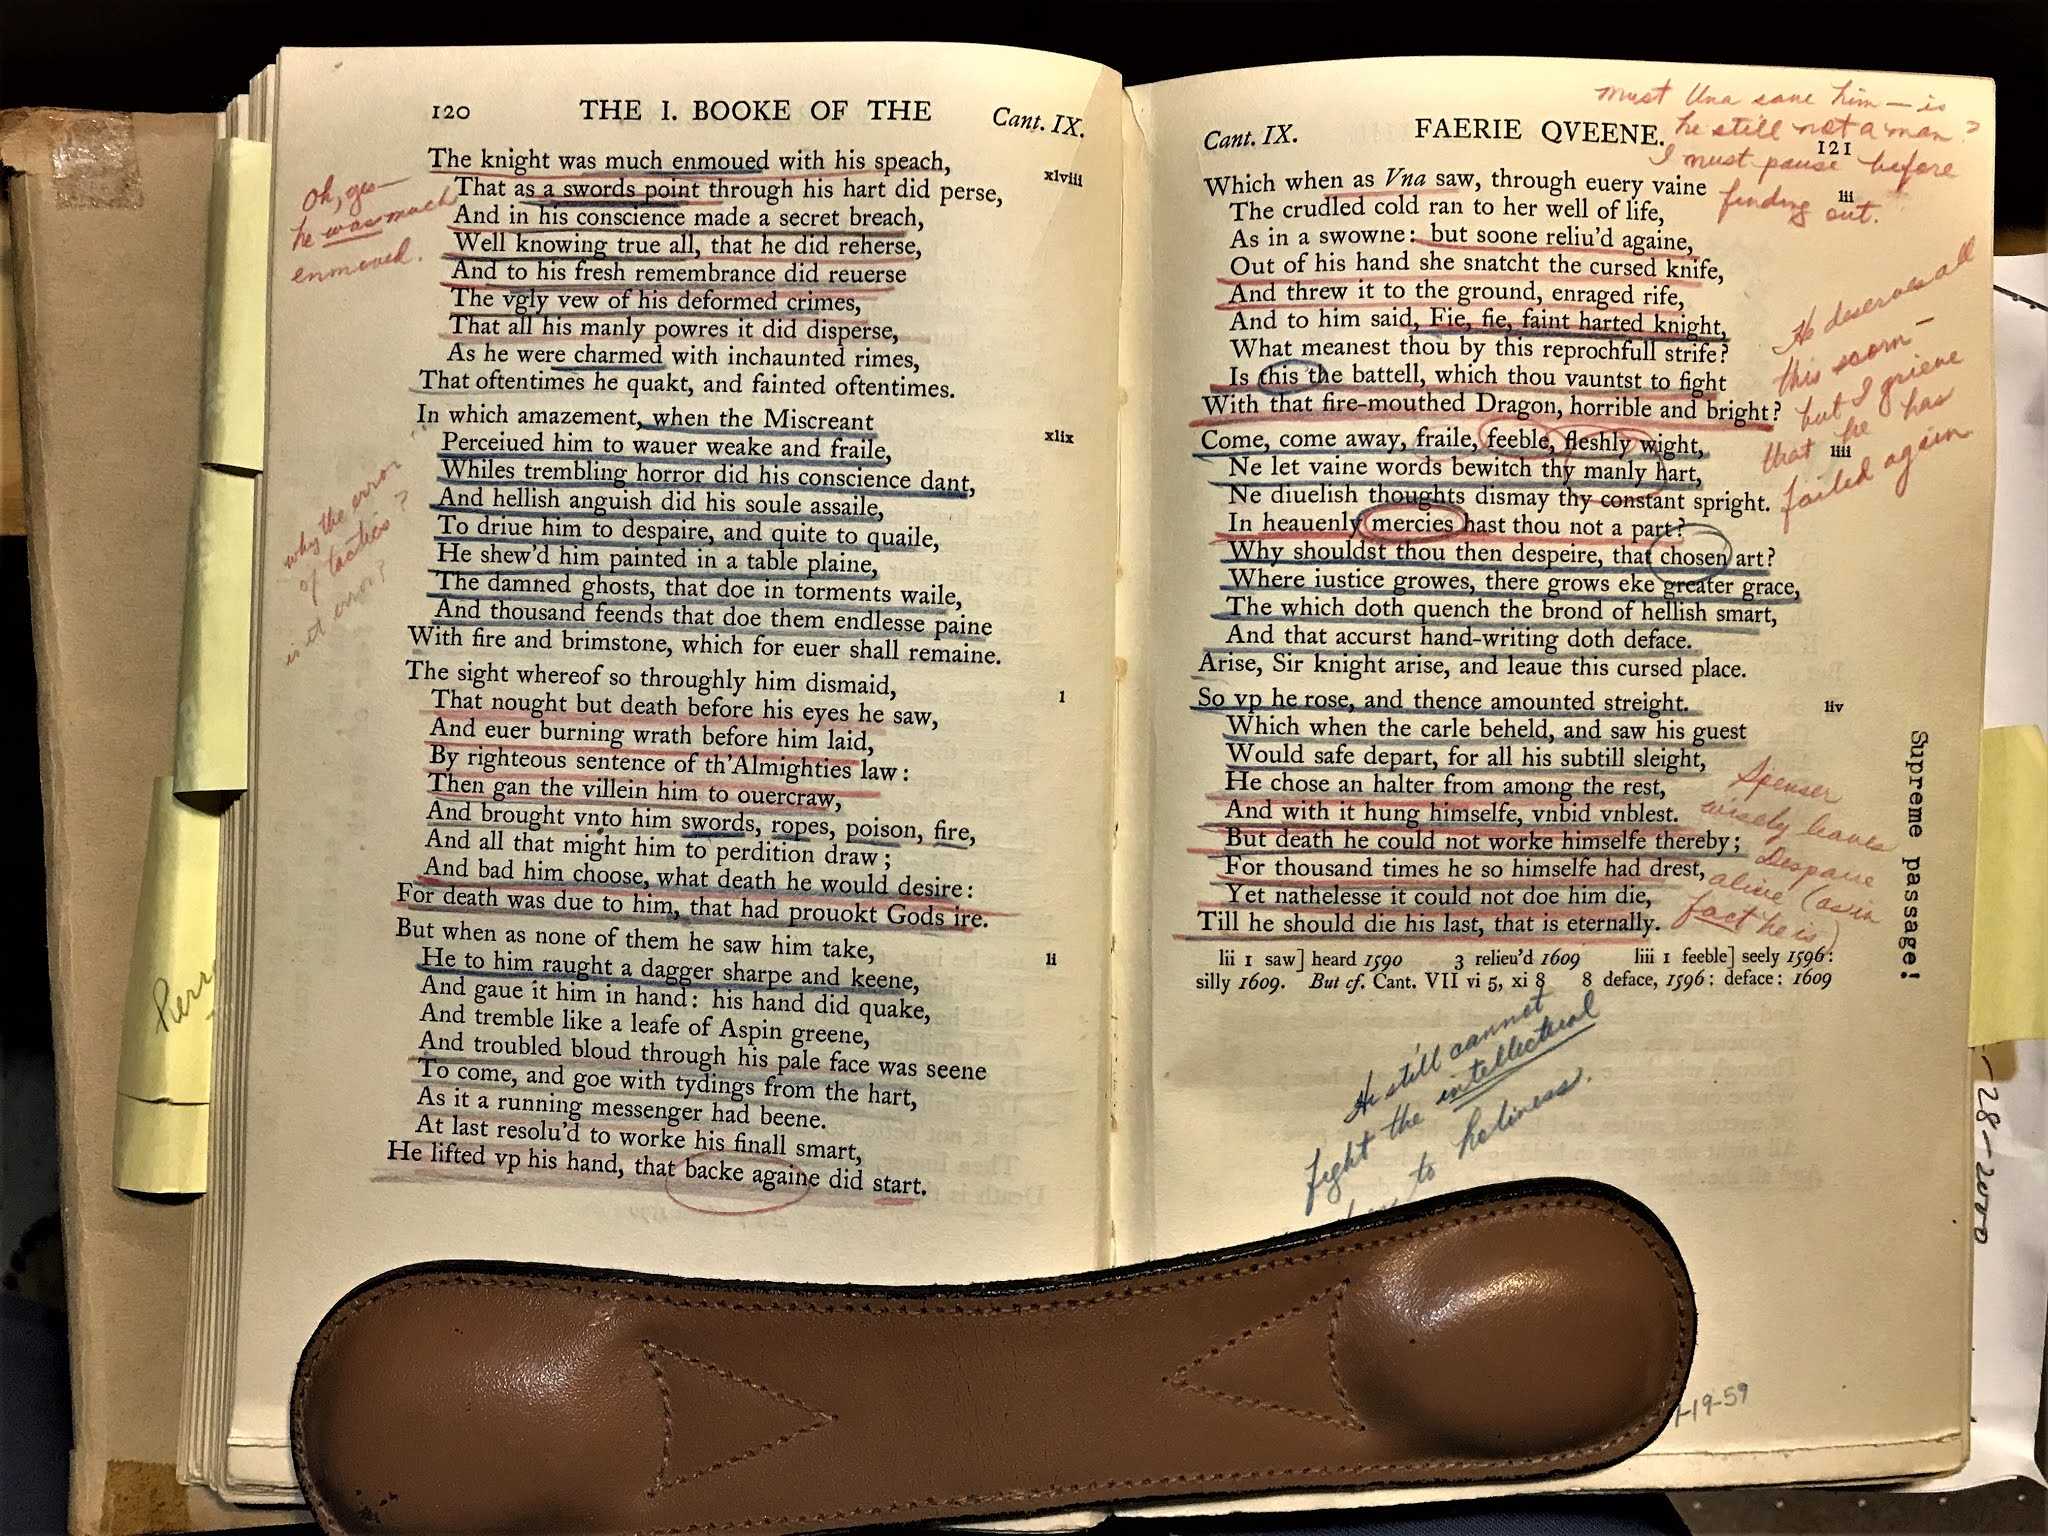 120 THE I. BOOKE OF THE Cant. IX.
The knight was much enmoued with his speach, xlviii
That as a swords point through his hart did perse,
And in his conscience made a secret breach,
Well knowing true all, that he did reherse,
And to his fresh remembrance did reuerse
The vgly vew of his deformed crimes,
That all his manly powres it did disperse,
As he were charmed with inchaunted rimes,
That oftentimes he quakt, and fainted oftentimes.
In which amazement, when the Miscreant xlix
Perceiued him to wauer weake and fraile,
Whiles trembling horror did his conscience dant,
And hellish anguish did his soule assaile,
To driue him to despaire, and quite to quaile,
He shew'd him painted in a table plaine,
The damned ghosts, that doe in torments waile,
And thousand feends that doe them endlesse paine
With fire and brimstone, which for euer shall remaine.
The sight whereof so throughly him dismaid, l
That nought but death before his eyes he saw,
And euer burning wrath before him laid,
By righteous sentence of th'Almighties law:
Then gan the villein him to ouercraw,
And brought vnto him swords, ropes, poison, fire,
And all that might him to perdition draw;
And bad him choose, what death he would desire:
For death was due to him, that had prouokt Gods ire.
But when as none of them he saw him take, li
He to him raught a dagger sharpe and keene,
And gaue it him in hand: his hand did quake,
And tremble like a leafe of Aspin greene,
And troubled bloud through his pale face was seene
To come, and goe with tydings from the hart,
As it a running messenger had beene.
At last resolu'd to worke his finall smart,
He lifted vp his hand, that backe againe did start.
Oh, yes—
he was much
enmoved.
why the error
of tactics?
is it error?
Cant. IX. FAERIE QVEENE. 121
Which when as Vna saw, through euery vaine lii
The crudled cold ran to her well of life,
As in a swowne: but soone reliu'd againe,
Out of his hand she snatcht the cursed knife,
And threw it to the ground, enraged rife,
And to him said, Fie, fie, faint harted knight,
What meanest thou by this reprochfull strife?
Is this the battell, which thou vauntst to fight
With that fire-mouthed Dragon, horrible and bright?
Come, come away, fraile, feeble, fleshly wight, liii
Ne let vaine words bewitch thy manly hart,
Ne diuelish thoughts dismay thy constant spright.
In heauenly mercies hast thou not a part?
Why shouldst thou then despeire, that chosen art?
Where iustice growes, there grows eke greater grace,
The which doth quench the brond of hellish smart,
And that accurst hand-writing doth deface.
Arise, Sir knight arise, and leaue this cursed place.
So vp he rose, and thence amounted streight. liv
Which when the carle beheld, and saw his guest
Would safe depart, for all his subtill sleight,
He chose an halter from among the rest,
And with it hung himselfe, vnbid vnblest.
But death he could not worke himselfe thereby;
For thousand times he so himselfe had drest,
Yet nathelesse it could not doe him die,
Till he should die his last, that is eternally.
lii 1 saw] heard 1590 3 relieu'd 1609 liii 1 feeble] seely 1596:
silly 1609. But cf. Cant. VII vi 5, xi 8 8 deface, 1596: deface: 1609
must Una save him — is
he still not a man?
I must pause before
finding out.
He deserves all
this scorn —
but I grieve
that he has
failed again
Spenser
wisely leaves
Despaire
alive (as in
fact he is)
Supreme passage!
He still cannot
fight the intellectual
to holiness.
-19-59
-28-2000